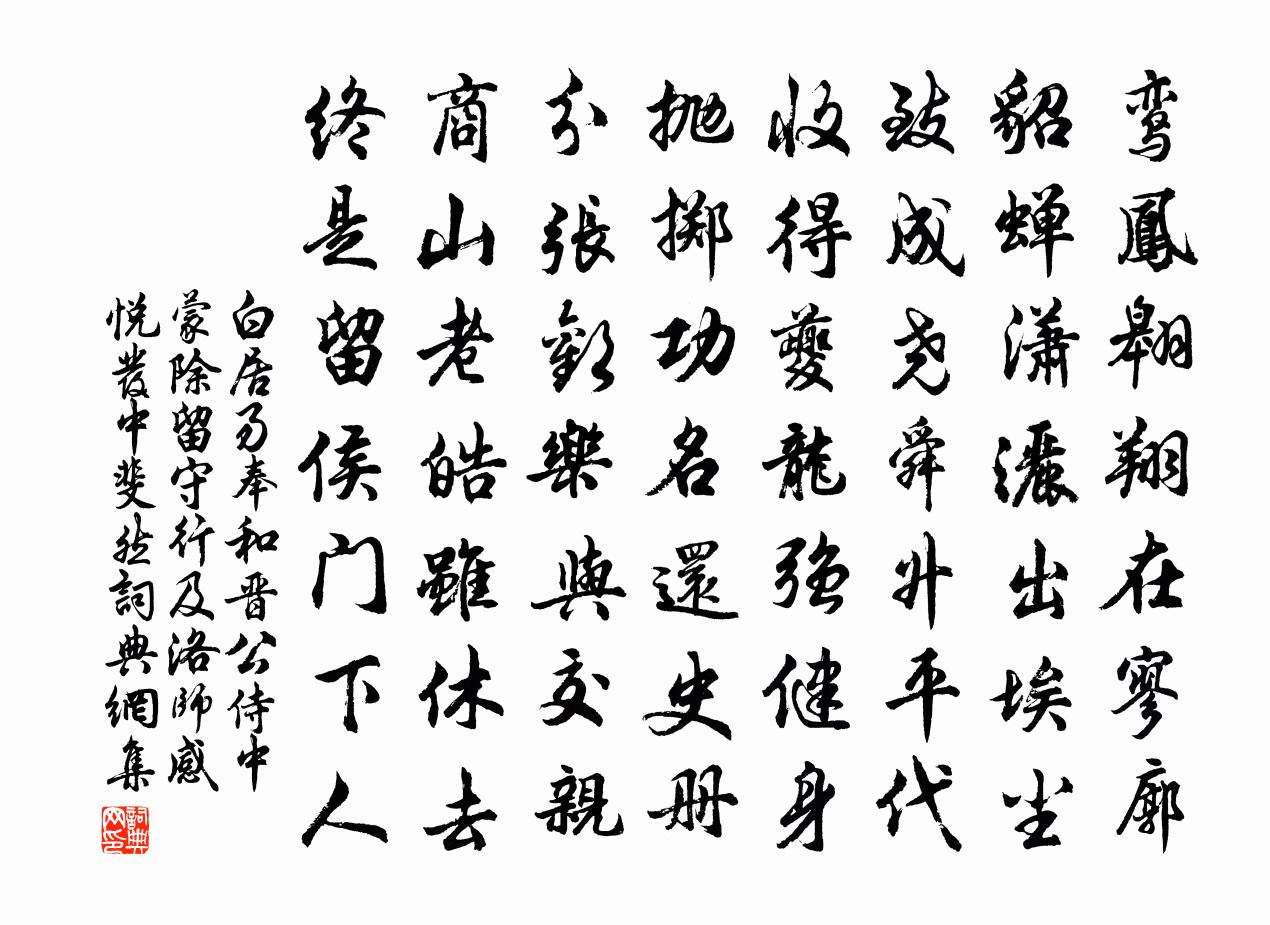 鸾鳳翱翔在寥廓
貂蝉潇灑出埃尘
致成尧舜升平代
收得夔龍強健身
抛掷功名還史册
分張歡樂與交親
商山老皓雖休去
终是留侯门下人
白居易奉和晋公侍中
蒙除留守行及洛師感
悦發中斐然詞典網集
詞典网印